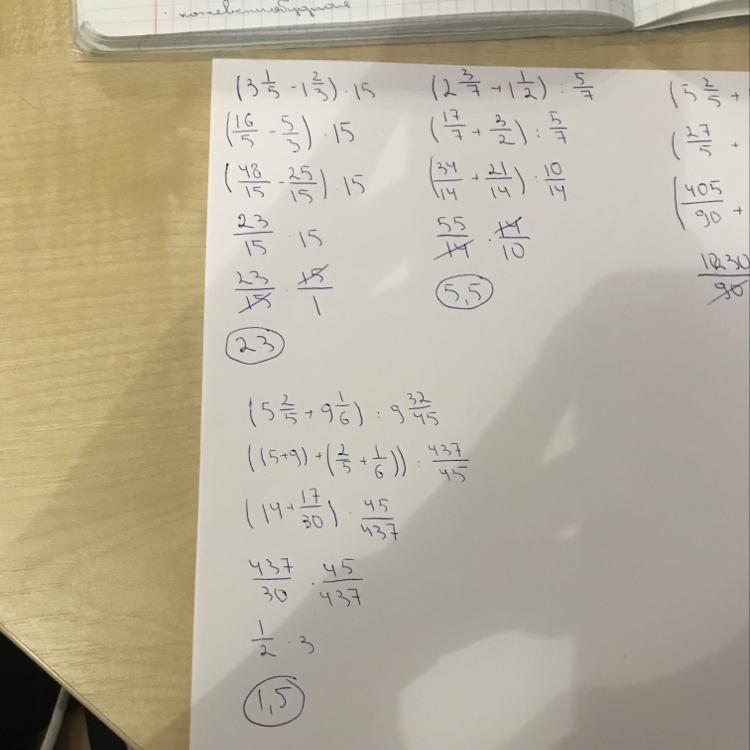 (3 1/5 - 1 2/3) · 15
(16/5 - 5/3) · 15
(48/15 - 25/15) · 15
23/15 · 15
23/15 · 15/1
23
(2 3/7 + 1 1/2) : 5/7
(17/7 + 3/2) : 5/7
(34/14 + 21/14) : 10/14
55/14 · 14/10
5,5
(5 2/5 +
(27/5 +
(405/90 +
(5 2/5 + 9 1/6) : 9 32/45
((5+9) + (2/5 + 1/6)) : 437/45
(14 + 17/30) · 45/437
437/30 · 45/437
1/2 · 3
1,5